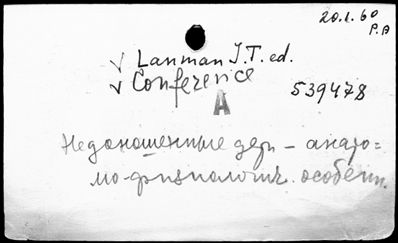 20.1.60
P.A
√ Lanman J.T. ed.
√ Conference
539478
A
Недоношенные дети – анато=
мо-физиологич. особенн.